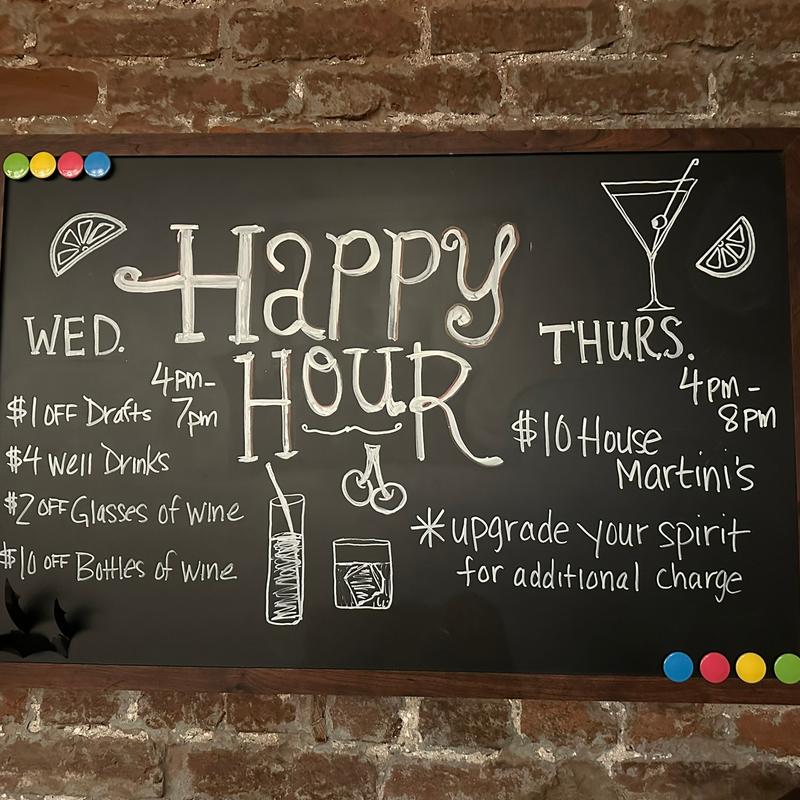 Happy
Hour
WED.
4pm-
7pm
$1 OFF Drafts
$4 Well Drinks
$2 OFF Glasses of wine
$10 OFF Bottles of wine
THURS.
4pm-
8pm
$10 House
Martini's
*upgrade your spirit
for additional charge